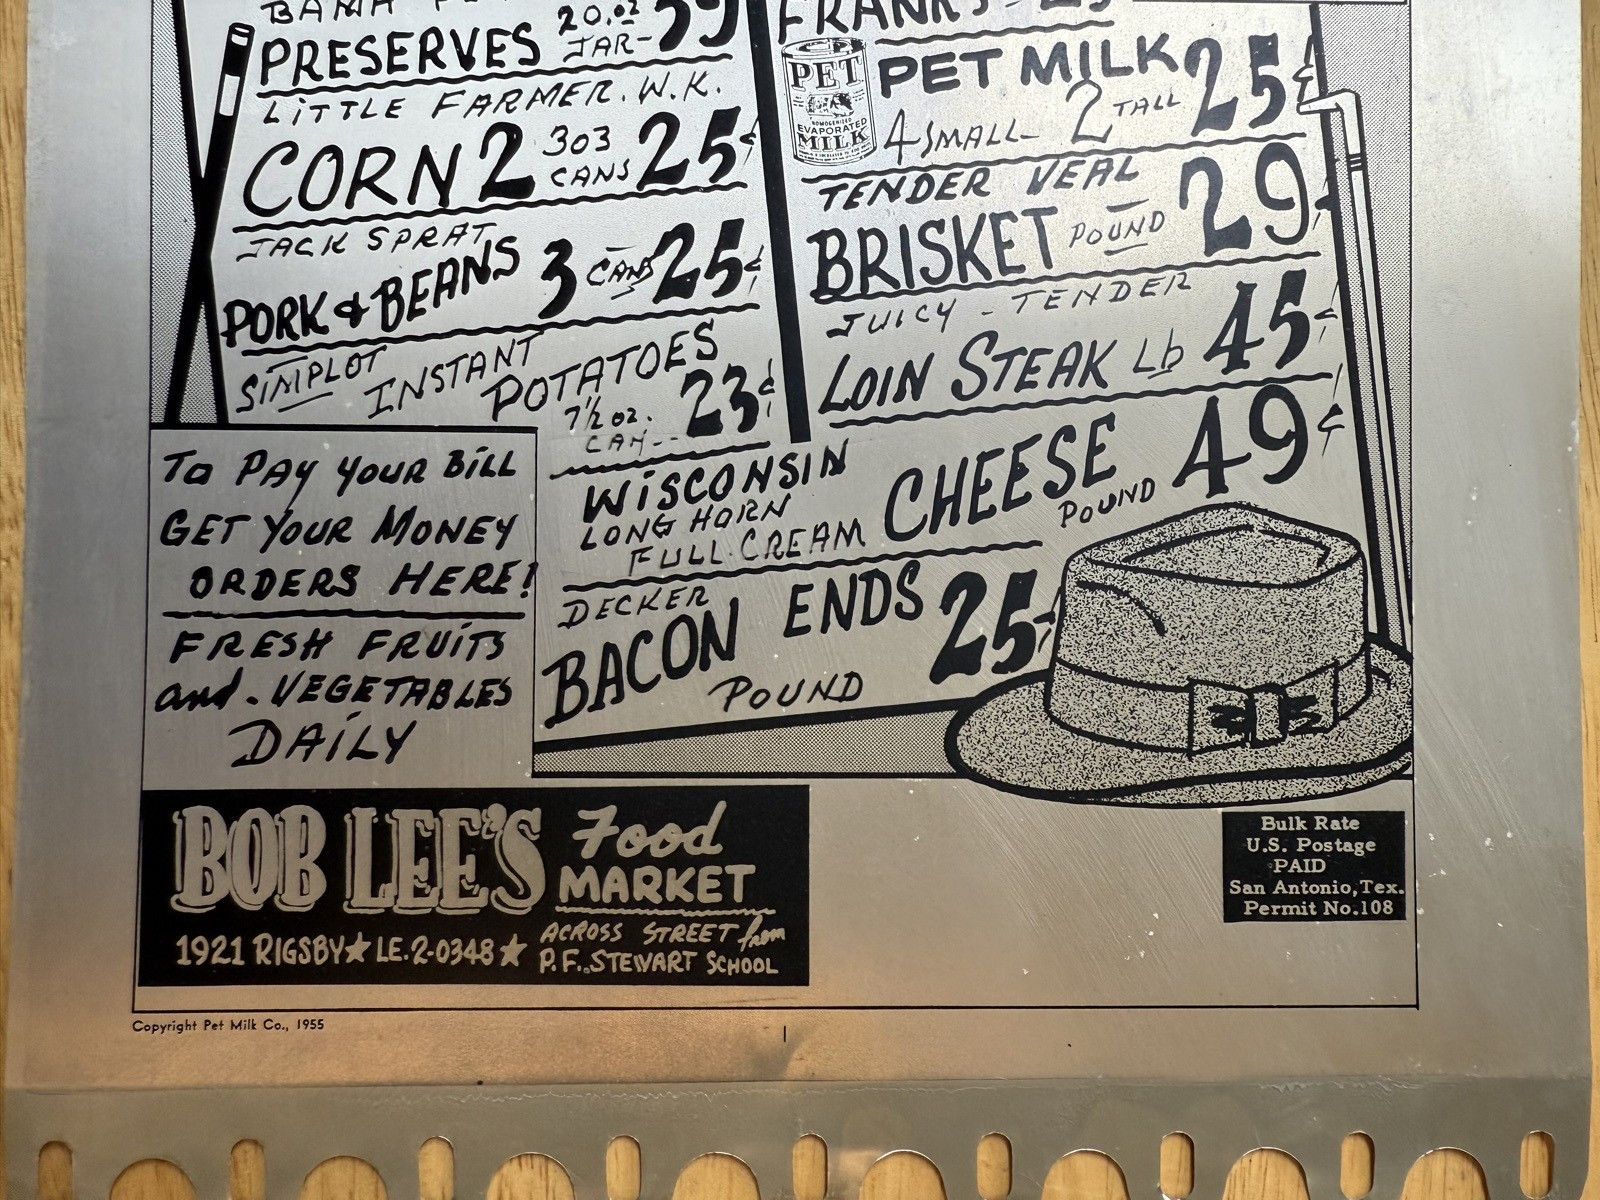 BAMA
PRESERVES 20.oz JAR- 39
LiTTLE FARMER. W.K.
CORN 2 303 CANS 25¢
JACK SPRAT
PORK & BEANS 3 CANS 25¢
SIMPLOT INSTANT POTATOES
7½ oz. CAN-- 23¢
FRANKS
PET MILK 25¢
4 SMALL- 2 TALL
PET
HOMOGENIZED
EVAPORATED
MILK
TENDER VEAL
BRISKET POUND 29¢
JUICY - TENDER
LOIN STEAK Lb 45¢
WiSCONSIN
LONG HORN
FULL.CREAM CHEESE POUND 49¢
DECKER
BACON ENDS 25¢
POUND
To PAY YOUR BiLL
GET YOUR MONEY
ORDERS HERE!
FRESH FRUiTS
and. VEGETABLES
DAiLY
BOB LEE'S Food MARKET
1921 RIGSBY★ LE.2-0348★ ACROSS STREET from
P.F. STEWART SCHOOL
Bulk Rate
U.S. Postage
PAID
San Antonio,Tex.
Permit No.108
Copyright Pet Milk Co., 1955